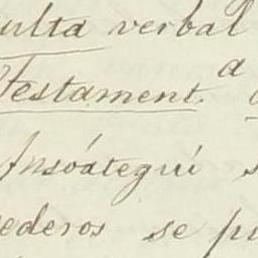 ulta verbal
Testament. a
Ansóategui s
ederos se pu